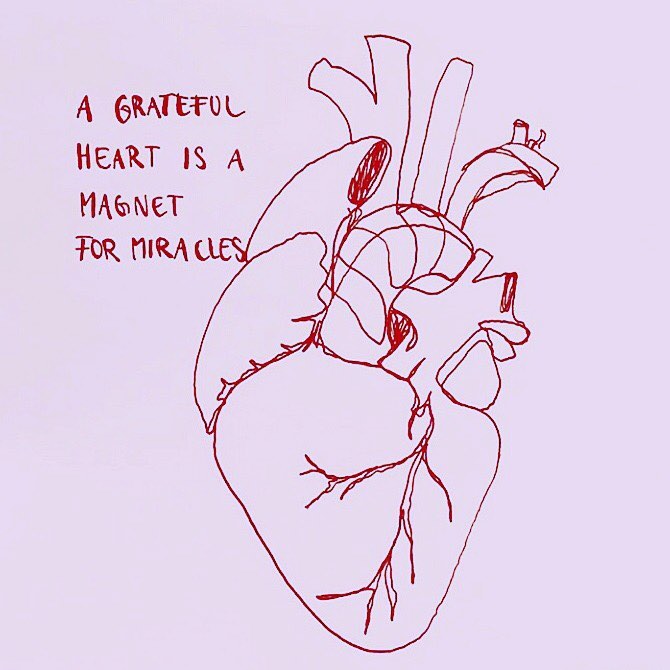 A GRATEFUL
HEART IS A
MAGNET
FOR MIRACLES